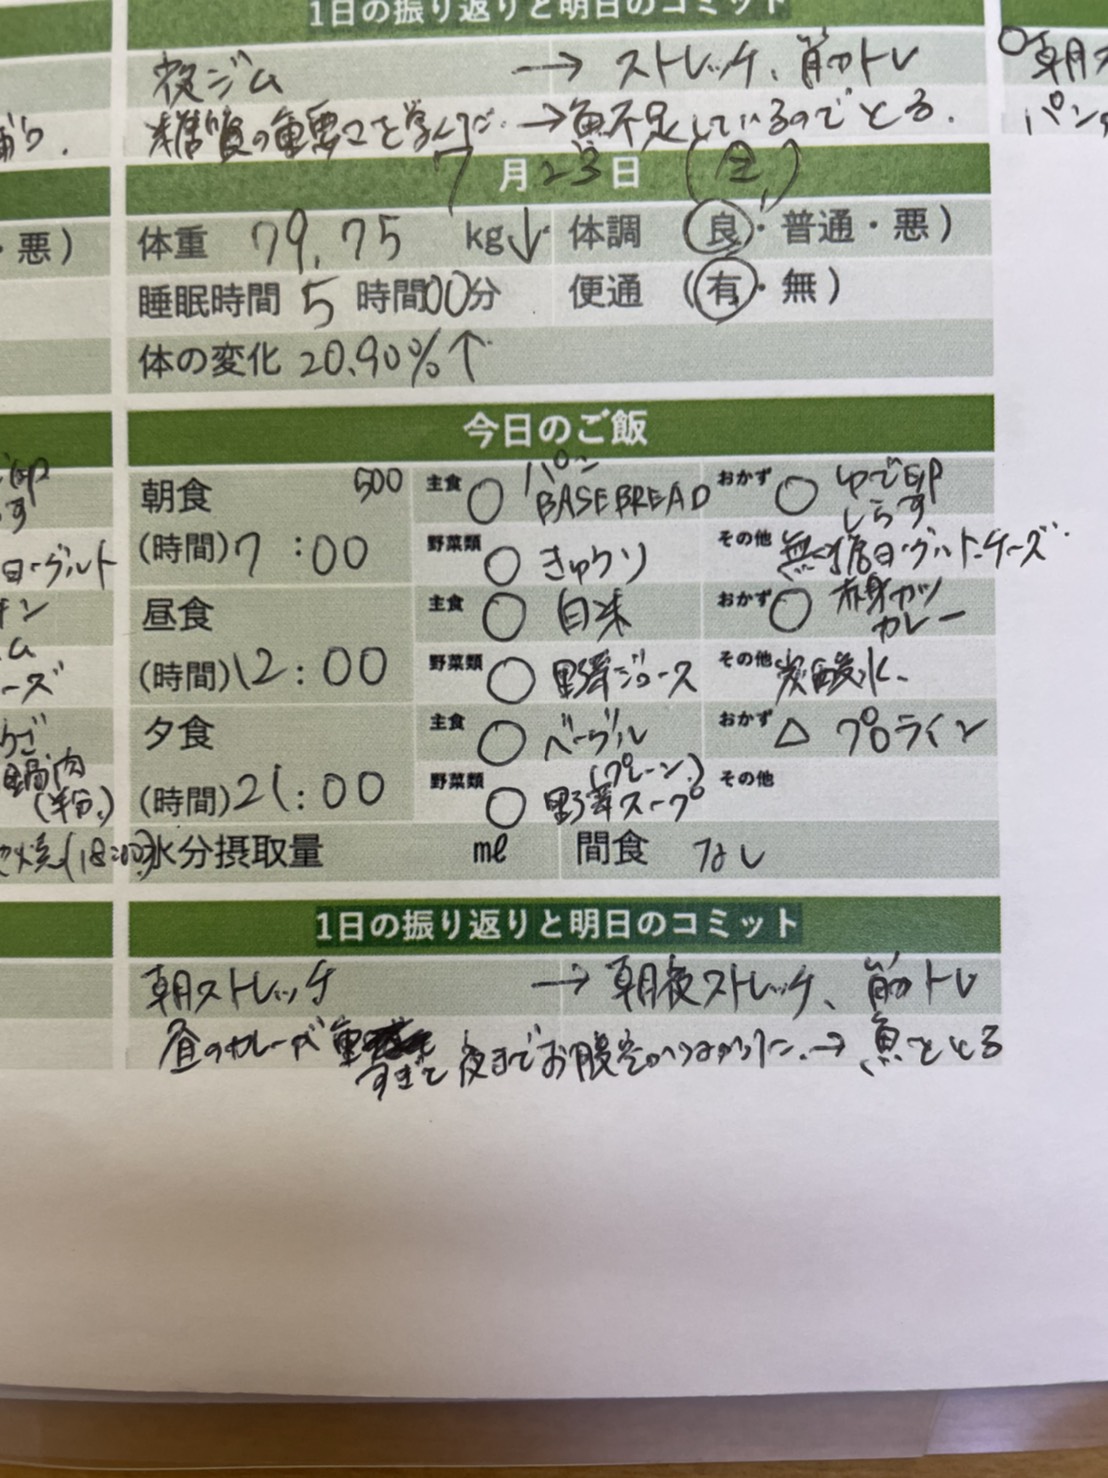 1日の振り返りと明日のコミット
夜ジム → ストレッチ、筋トレ
糖質の重要さを学んだ. →魚不足しているのでとる.
○朝ス
パン
7月23日 (金)
体重 79.75 kg↓ 体調 (良・普通・悪)
睡眠時間 5 時間00分 便通 (有・無)
体の変化 20.90%↑
・悪)
今日のご飯
朝食 500 主食 ○ パン BASEBREAD おかず ○ ゆで卵 しらす
(時間)7:00 野菜類 ○ きゅうり その他 無糖ヨーグルト.チーズ
昼食 主食 ○ 白米 おかず ○ 赤身カツカレー
(時間)12:00 野菜類 ○ 野菜ジュース その他 炭酸水
夕食 主食 ○ ベーグル(プレーン) おかず △ プロテイン
(時間)21:00 野菜類 ○ 野菜スープ その他
水分摂取量 ml 間食 なし
ヨーグルト
ーズ
鍋肉
(半分)
(18:00)
1日の振り返りと明日のコミット
朝ストレッチ → 朝夜ストレッチ、筋トレ
昼のカレーが重すぎて夜までお腹空かなかった.→ 魚をとる